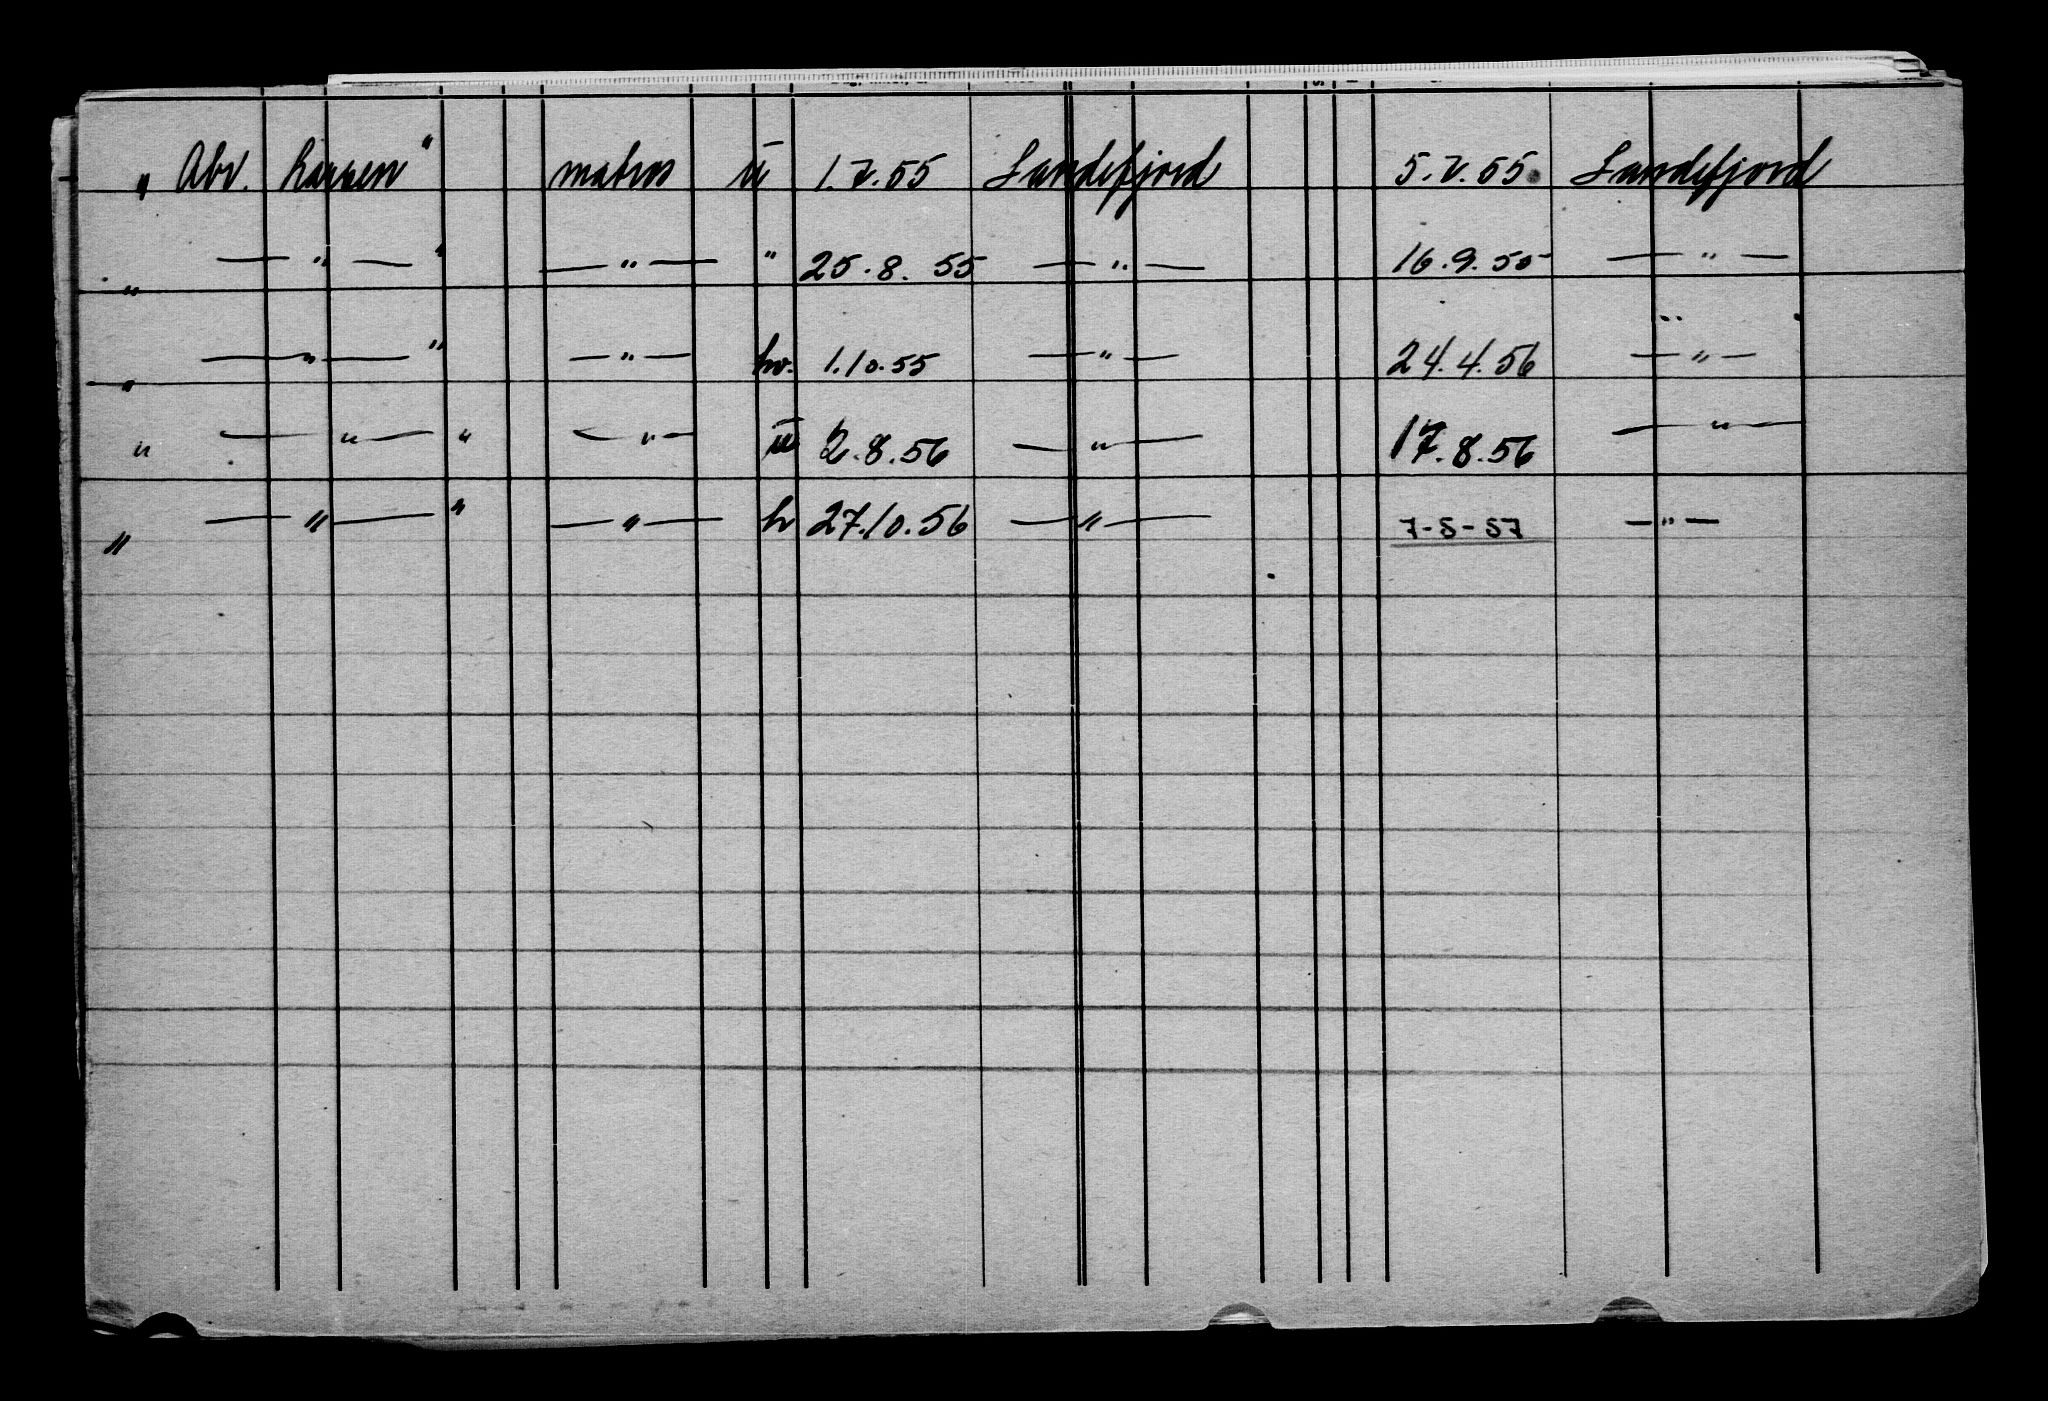 „ Abr. Larsen" matros ū 1.7.55 Sandefjord 5.7.55 Sandefjord
„ — " — " — " — " 25.8.55 — " — 16.9.55 — " —
„ — " — " — " — hv. 1.10.55 — " — 24.4.56 — " —
" — " — " — " — ū 2.8.56 — " — 17.8.56 — " —
" — " — " — " — h 27.10.56 — " — 7-5-57 — " —